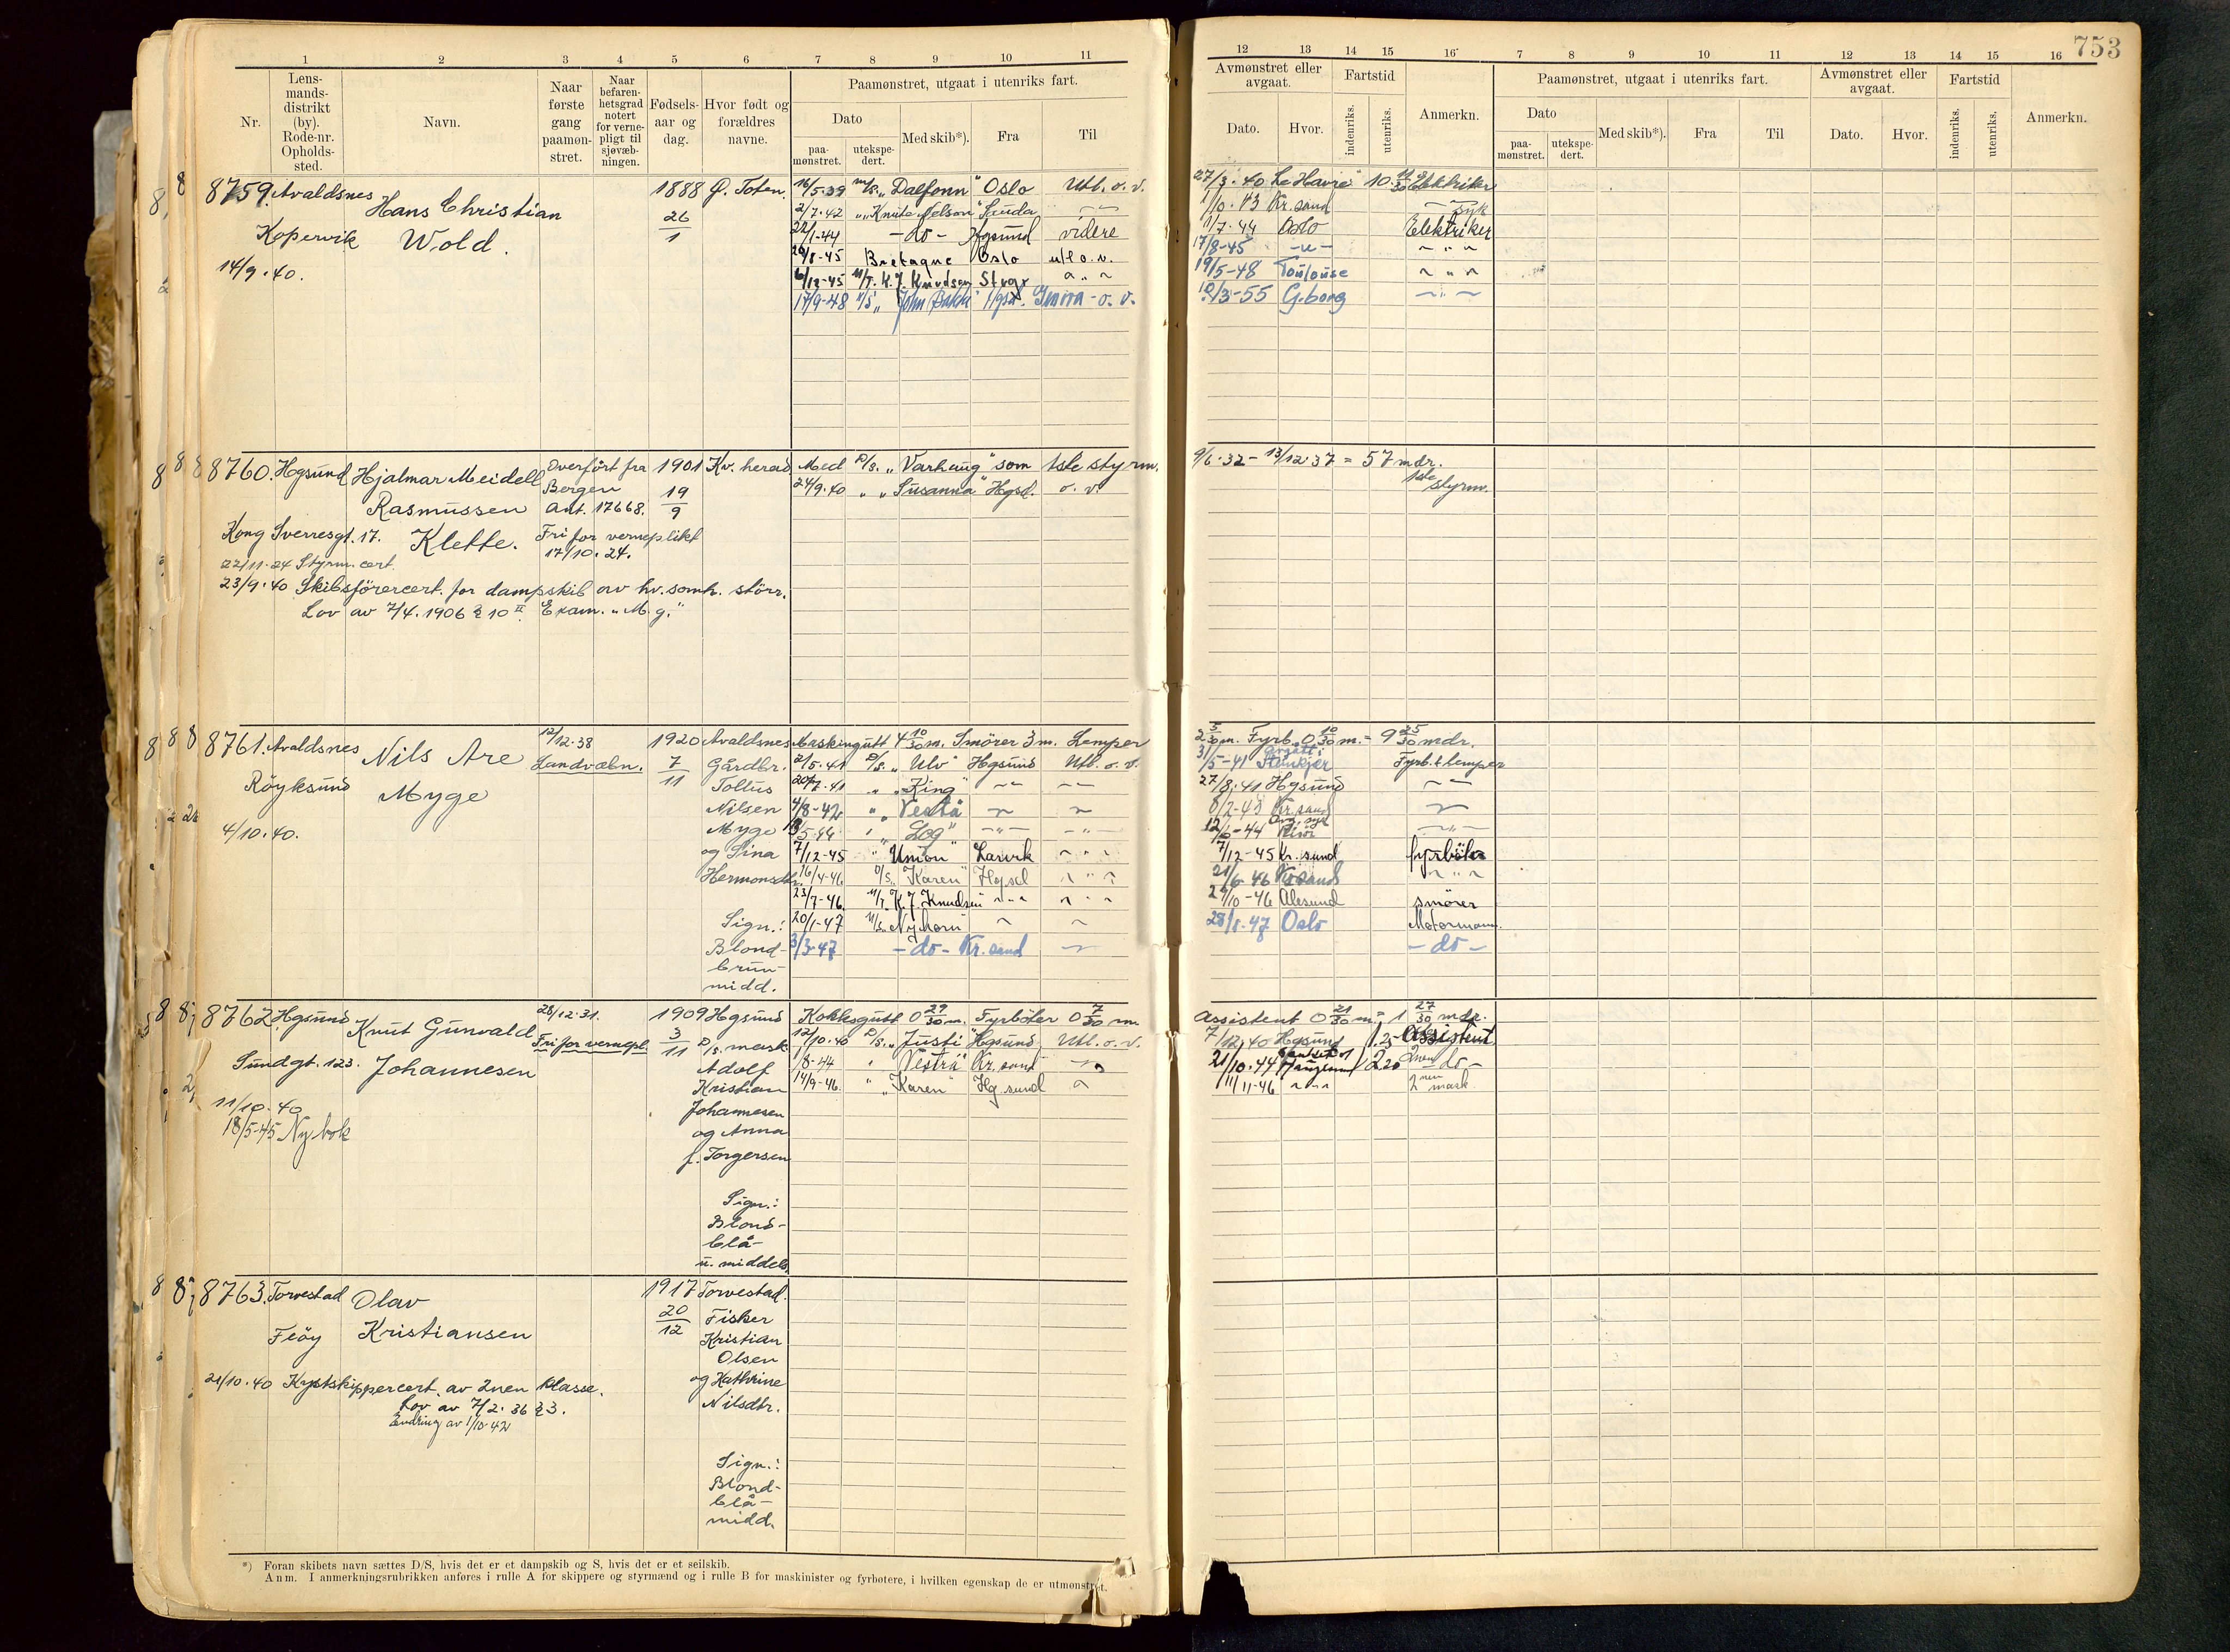 753
1 2 3 4 5 6 7 8 9 10 11
Nr.
Lens-
mands-
distrikt
(by).
Rode-nr.
Opholds-
sted.
Navn.
Naar
første
gang
paamøn-
stret.
Naar
befaren-
hetsgrad
notert
for verne-
pligt til
sjøvæb-
ningen.
Fødsels-
aar og
dag.
Hvor født og
forældres
navne.
Paamønstret, utgaat i utenriks fart.
Dato
paa-
mønstret.
utekspe-
dert.
Med skib*).
Fra
Til
12 13 14 15 16 7 8 9 10 11 12 13 14 15 16
Avmønstret eller
avgaat.
Dato.
Hvor.
Fartstid
indenriks.
utenriks.
Anmerkn.
Paamønstret, utgaat i utenriks fart.
Dato
paa-
mønstret.
utekspe-
dert.
Med skib*).
Fra
Til
Avmønstret eller
avgaat.
Dato.
Hvor.
Fartstid
indenriks.
utenriks.
Anmerkn.
8759. Avaldsnes
Hans Christian
Kopervik Wold.
14/9.40.
1888
26
1
Ø. Toten.
16/5-39 m/s. „Dalfonn" Oslo Utl. o. v.
2/7-42 „ „Knute Nelson" Sauda
22/1-44 - do - Hgsund videre
20/8-45 Bretagne Oslo utl o.v.
6/12-45 M/T. K. J. Knudsen Stvgr
17/9-48 M/S „John Bakke" Hgsd.
27/3.40 Le Havre 10 11/30 Elektriker
1/10.43 Kr.sand syk
1/7.44 Oslo Elektriker
17/8-45 -"-
19/5-48 Toulouse
10/3-55 G.borg
8760. Hgsund Hjalmar Meidell
Rasmussen
Kong Sverresgt. 17. Klette.
Overført fra
Bergen
Ant. 17668.
Fri for verneplikt
17/10.24.
22/11-24 Styrm. cert.
23/9.40 Skibsførercert. for dampskib av hv. somh. större.
Lov av 7/4.1906 § 10 II. Exam. „M. g."
1901
19
9
Kv. herad
Med D/s. „Varhaug" som 1ste styrm.
24/9.40 „ „Susanna" Hgsd. o. v.
9/6.32 - 13/12.37 = 57 mdr.
1ste styrm.
8761. Avaldsnes Nils Are
Röyksund Myge
4/10.40.
12/12.38
Landvæbn.
1920
7
11
Avaldsnes
Gårdbr.
Tollus
Nilsen
Myge
og Sina
Hermonsdtr.
Sign.:
Blond-
brun-
midd.
Maskingutt 4 10/30 m. Smörer 3 m. Lemper
2/5.41 D/s. „Ulv" Hgsund Utl. o. v.
20/7.41 „ „King"
4/8-42 „ „Vestra"
„Log"
7/12-45 „Union" Larvik
16/4-46 D/S. „Karen" Hgsd
23/7-46 M/T. K. J. Knudsen
20/1-47 M/S.
3/3-47 - do - Kr.sand
2 5/30 m. Fyrb. 0 10/30 m. = 9 25/30 mdr.
31/5-41 Steinkjer Fyrb. & lemper
27/8.41 Hgsund
8/2-43 Kr.sand
12/6-44 Risør
7/12-45 Kr.sund fyrbøter
21/6-46 Kr.sand
29/10-46 Ålesund smører
28/1-47 Oslo Motormann.
- do -
8762. Hgsund Knut Gunvald
Sundgt. 123. Johannesen
11/10.40
18/5-45 Ny bok
28/12.31.
Fri for vernepl.
1909
3
11
Hgsund
D/s. mask.
Adolf
Kristian
Johannesen
og Anna
f. Torgersen
Sign.:
Blond-
blå-
u. middels.
Kokksgutt 0 29/30 m. Fyrböter 0 7/30 m.
12/10.40 D/s. „Justi" Hgsund Utl. o. v.
/8-44 „ „Vestra" Kr.sand
14/9-46. „ „Karen" Hg.sund
Assistent 0 21/30 m. = 1 27/30 mdr.
7/12.40 Hgsund 1.25 Assistent
21/10.44 Haugesund 2 20 2nen - do -
11/11-46 2nen mask.
8763. Torvestad Olav
Feöy Kristiansen
21/10.40 Kystskippercert. av 2nen klasse.
Lov av 7/2.36 § 3.
Endring av 1/10-42
1917
20
12
Torvestad.
Fisker
Kristian
Olsen
og Kathrine
Nilsdtr.
Sign.:
Blond-
blå-
midd.
*) Foran skibets navn sættes D/S, hvis det er et dampskib og S, hvis det er et seilskib.
Anm. I anmerkningsrubrikken anføres i rulle A for skippere og styrmænd og i rulle B for maskinister og fyrbøtere, i hvilken egenskap de er utmønstret.